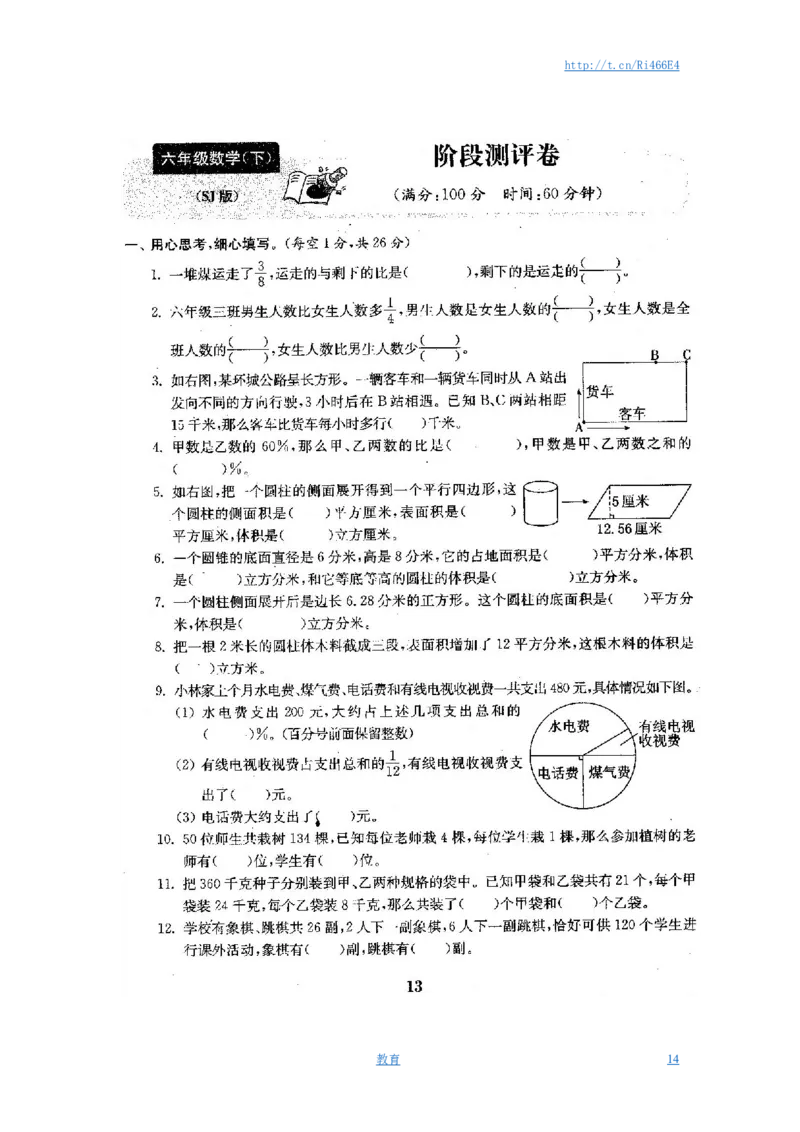 http://t.cn/Ri466E4
六年级数学(下)
阶段测评卷
(SJ版)
(满分:100分 时间:60分钟)
一、用心思考,细心填写。(每空1分,共26分)
1. 一堆煤运走了3/8,运走的与剩下的比是( ),剩下的是运走的( )/( )。
2. 六年级三班男生人数比女生人数多1/4,男生人数是女生人数的( )/( ),女生人数是全
班人数的( )/( ),女生人数比男生人数少( )/( )。
3. 如右图,某环城公路呈长方形。一辆客车和一辆货车同时从A站出
发向不同的方向行驶,3小时后在B站相遇。已知B、C两站相距
15千米,那么客车比货车每小时多行( )千米。
B C
货车
客车
A
4. 甲数是乙数的60%,那么甲、乙两数的比是( ),甲数是甲、乙两数之和的
( )%。
5. 如右图,把一个圆柱的侧面展开得到一个平行四边形,这
个圆柱的侧面积是( )平方厘米,表面积是( )
平方厘米,体积是( )立方厘米。
5厘米
12.56厘米
6. 一个圆锥的底面直径是6分米,高是8分米,它的占地面积是( )平方分米,体积
是( )立方分米,和它等底等高的圆柱的体积是( )立方分米。
7. 一个圆柱侧面展开后是边长6.28分米的正方形。这个圆柱的底面积是( )平方分
米,体积是( )立方分米。
8. 把一根2米长的圆柱体木料截成三段,表面积增加了12平方分米,这根木料的体积是
( )立方米。
9. 小林家上个月水电费、煤气费、电话费和有线电视收视费一共支出480元,具体情况如下图。
(1) 水电费支出200元,大约占上述几项支出总和的
( )%。(百分号前面保留整数)
(2) 有线电视收视费占支出总和的1/12,有线电视收视费支
出了( )元。
(3) 电话费大约支出了( )元。
水电费
有线电视
收视费
电话费
煤气费
10. 50位师生共栽树134棵,已知每位老师栽4棵,每位学生栽1棵,那么参加植树的老
师有( )位,学生有( )位。
11. 把360千克种子分别装到甲、乙两种规格的袋中。已知甲袋和乙袋共有21个,每个甲
袋装24千克,每个乙袋装8千克,那么共装了( )个甲袋和( )个乙袋。
12. 学校有象棋、跳棋共26副,2人下一副象棋,6人下一副跳棋,恰好可供120个学生进
行课外活动,象棋有( )副,跳棋有( )副。
13
教育
14